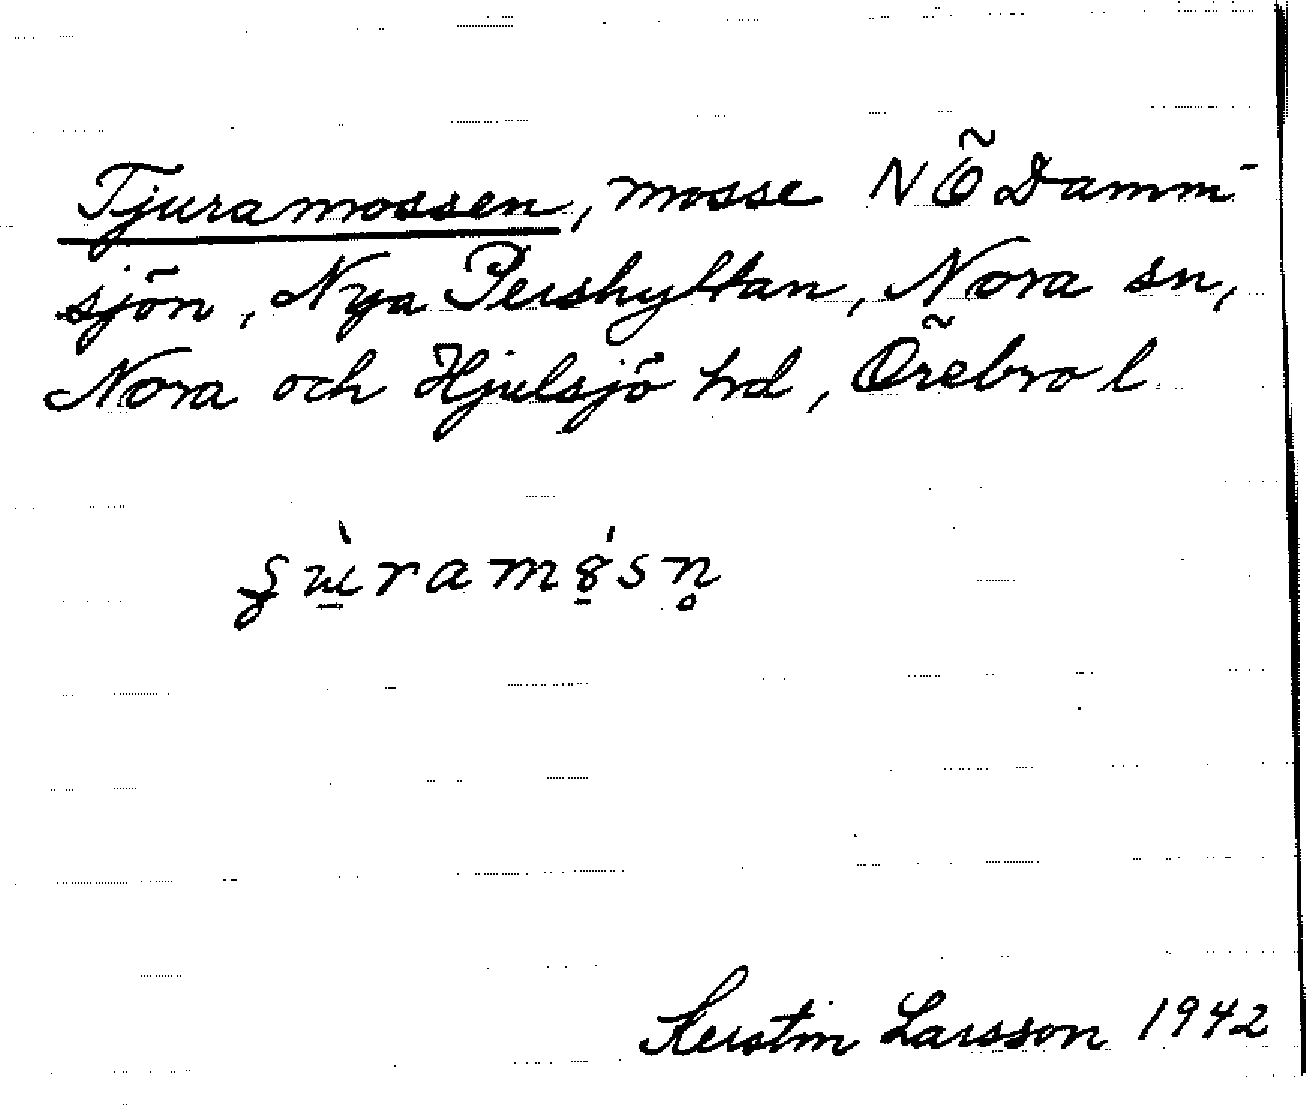 Tjuramossen, mosse NÖ Damm-
sjön, Nya Pershyttan, Nora sn,
Nora och Hjulsjö hrd, Örebro l
Kerstin Larsson 1942